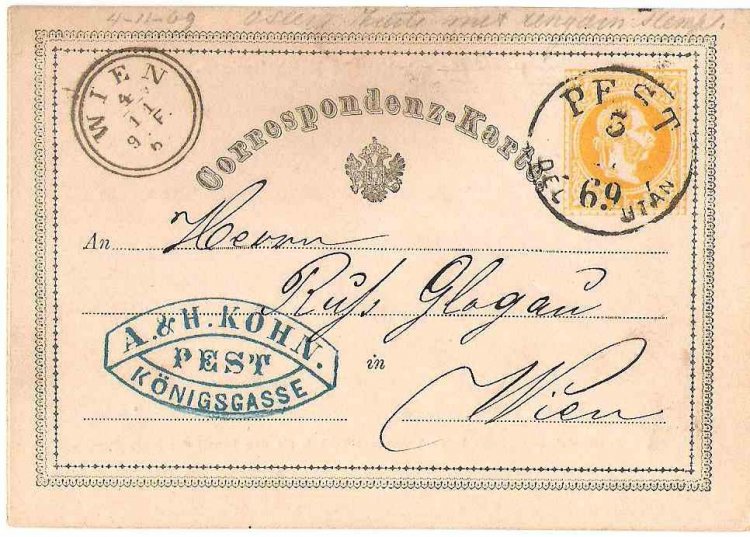 4-11-69
WIEN
4
11
9. F.
Correspondenz-Karte
PEST
5
69
DÉL UTÁN
An Herrn
Russ Glogau
A. & H. KOHN.
PEST
KÖNIGSGASSE
in
Wien